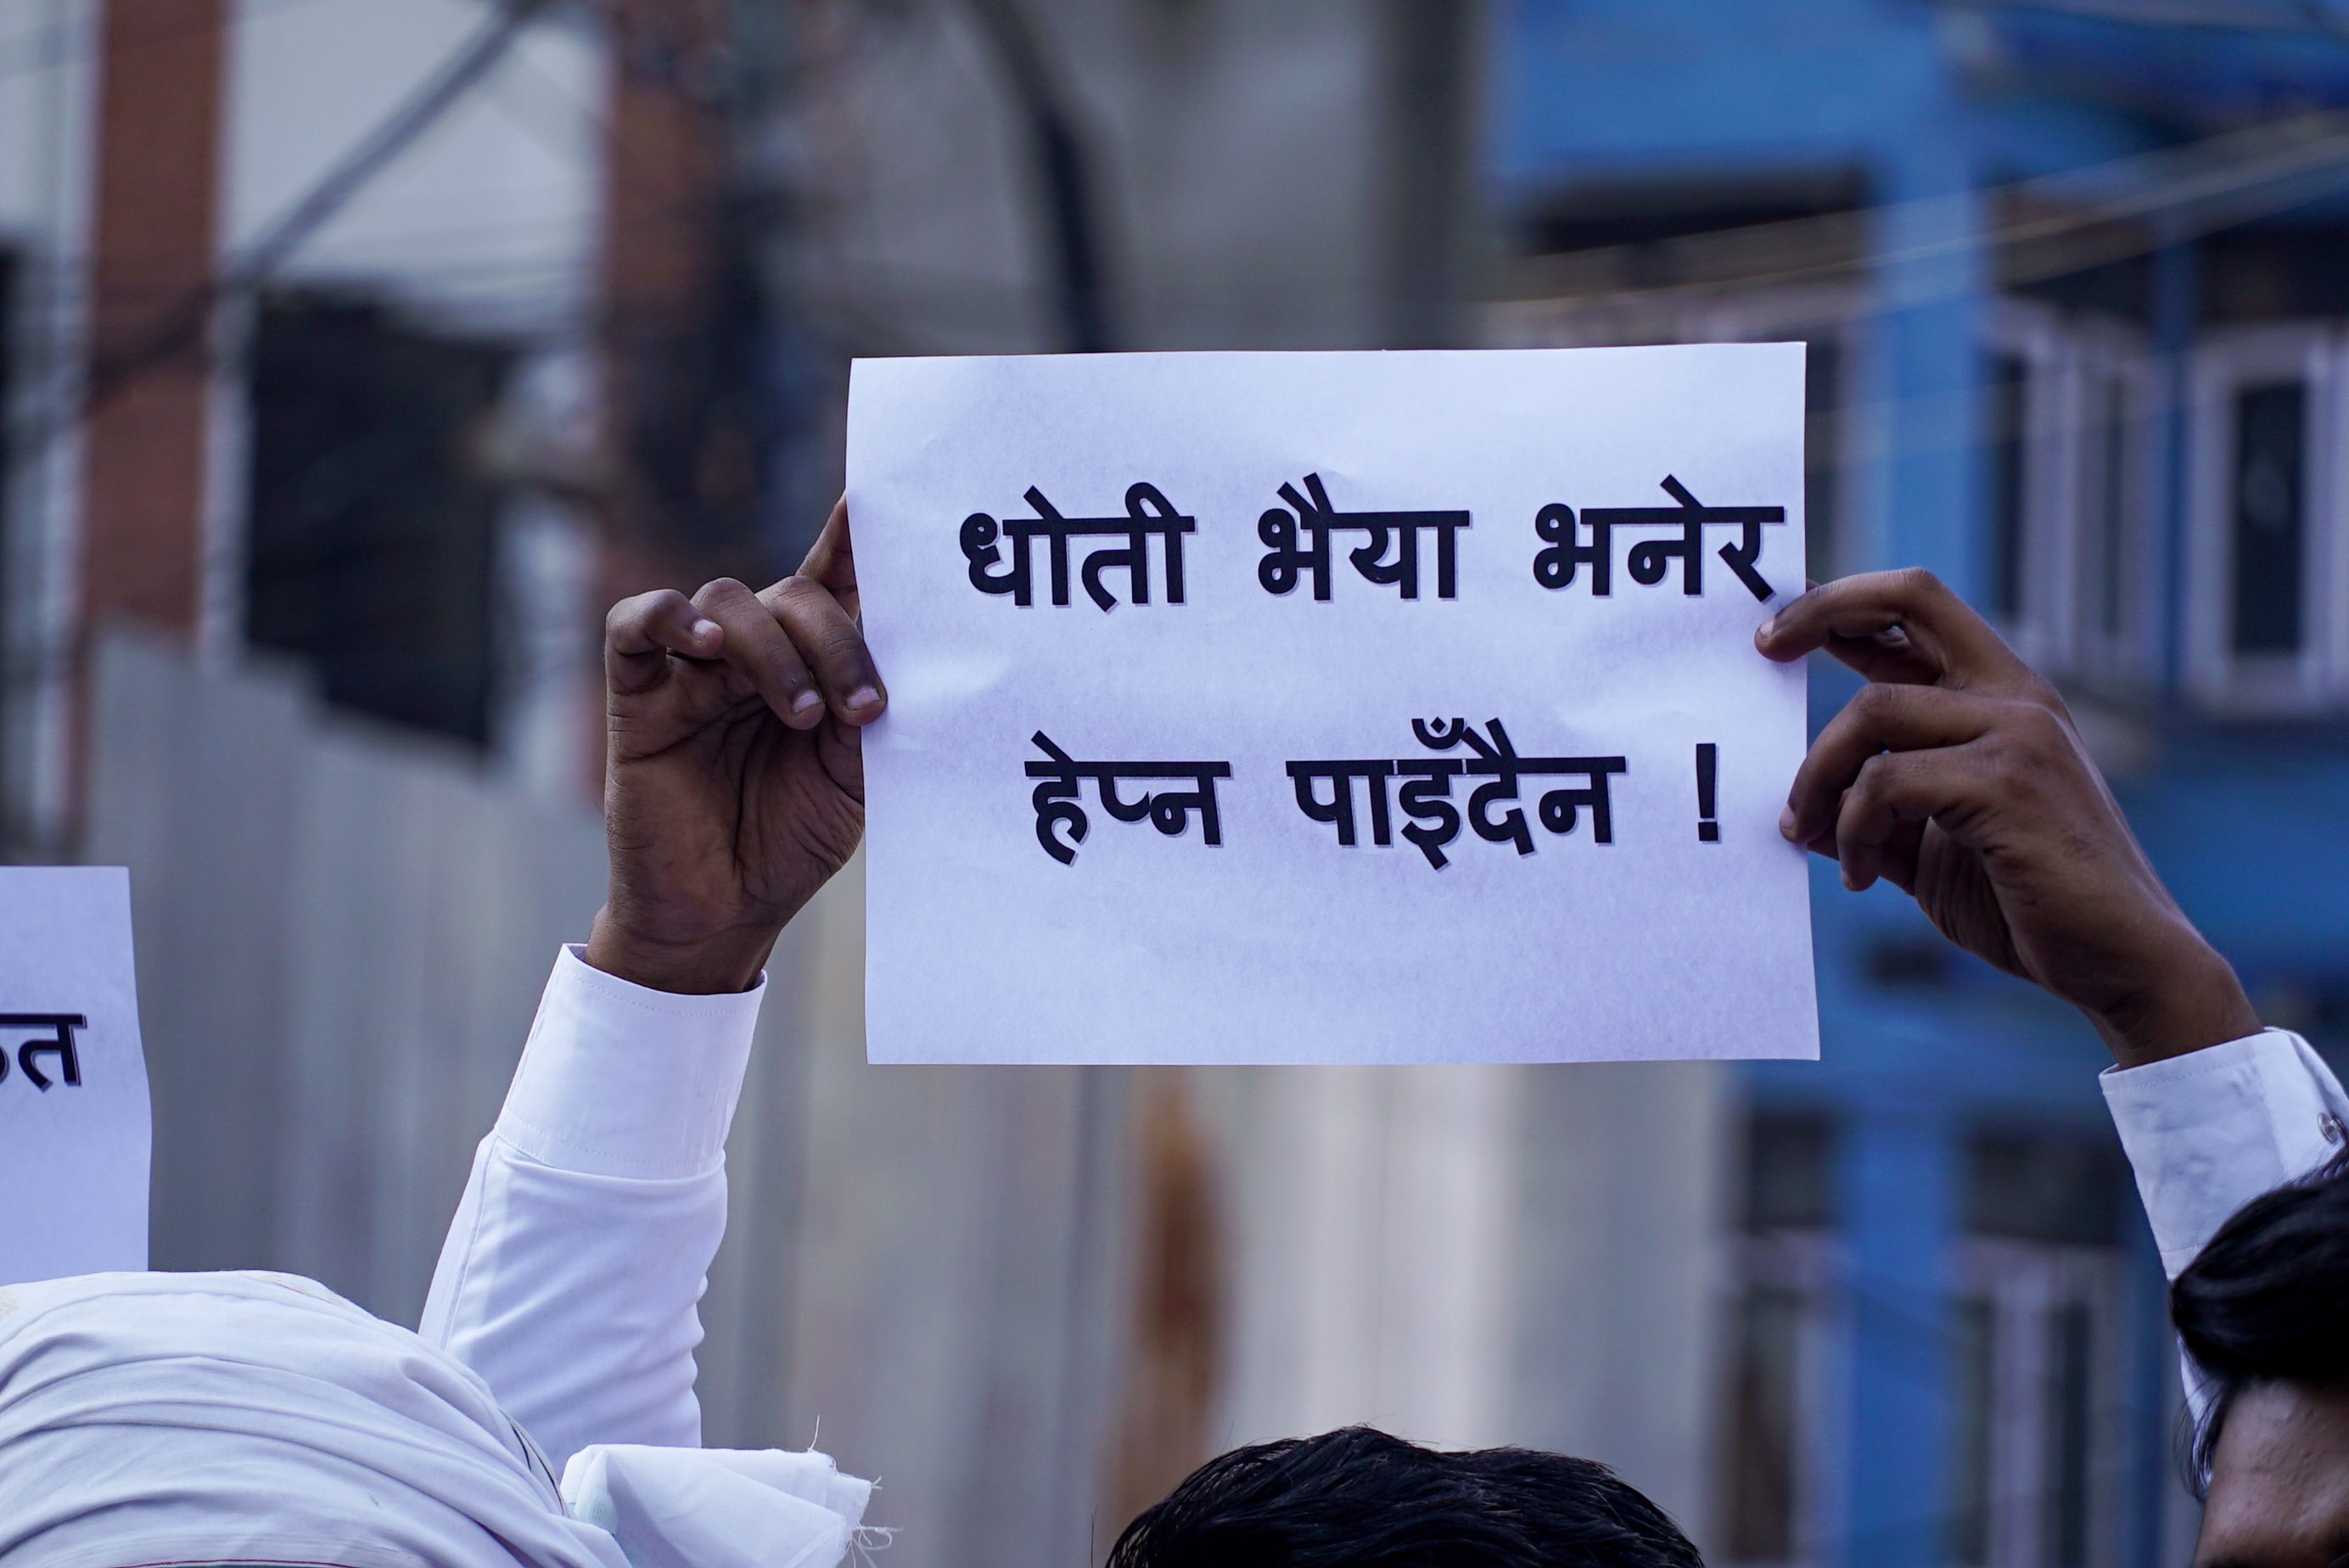 धोती भैया भनेर
हेप्न पाइँदैन !